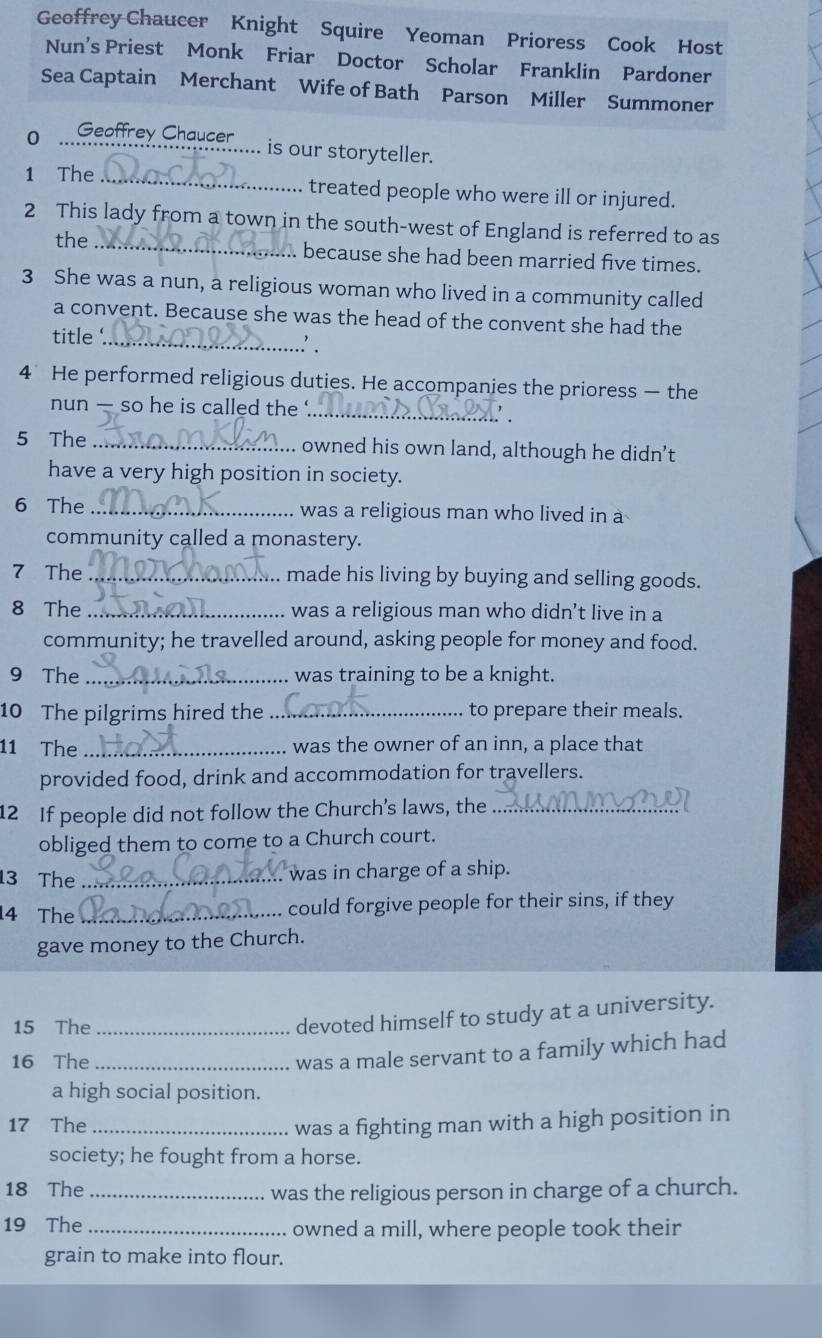 Geoffrey Chaucer Knight Squire Yeoman Prioress Cook Host
Nun's Priest Monk Friar Doctor Scholar Franklin Pardoner
Sea Captain Merchant Wife of Bath Parson Miller Summoner
0 Geoffrey Chaucer is our storyteller.
1 The Doctor treated people who were ill or injured.
2 This lady from a town in the south-west of England is referred to as
the Wife of Bath because she had been married five times.
3 She was a nun, a religious woman who lived in a community called
a convent. Because she was the head of the convent she had the
title 'Prioress'.
4 He performed religious duties. He accompanies the prioress — the
nun — so he is called the 'Nun's Priest'.
5 The Franklin owned his own land, although he didn't
have a very high position in society.
6 The Monk was a religious man who lived in a
community called a monastery.
7 The Merchant made his living by buying and selling goods.
8 The Friar was a religious man who didn't live in a
community; he travelled around, asking people for money and food.
9 The Squire was training to be a knight.
10 The pilgrims hired the Cook to prepare their meals.
11 The Host was the owner of an inn, a place that
provided food, drink and accommodation for travellers.
12 If people did not follow the Church's laws, the Summoner
obliged them to come to a Church court.
13 The Sea Captain was in charge of a ship.
14 The Pardoner could forgive people for their sins, if they
gave money to the Church.
15 The devoted himself to study at a university.
16 The was a male servant to a family which had
a high social position.
17 The was a fighting man with a high position in
society; he fought from a horse.
18 The was the religious person in charge of a church.
19 The owned a mill, where people took their
grain to make into flour.